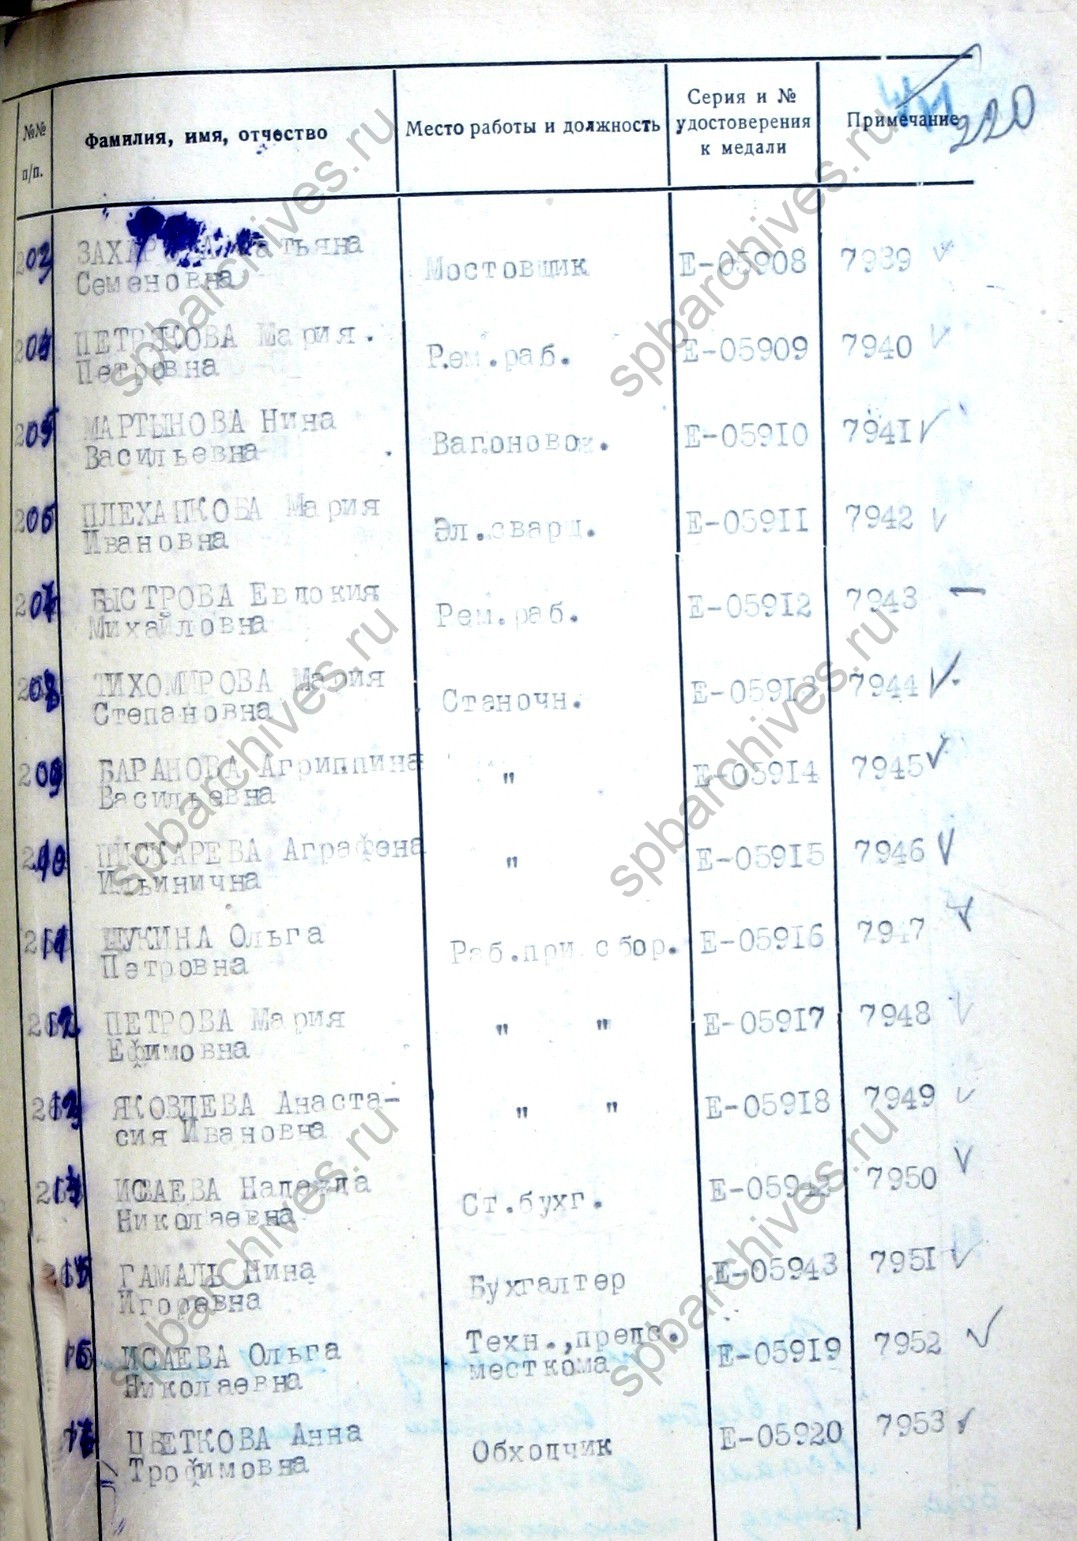 220
№№ п/п.
Фамилия, имя, отчество
Место работы и должность
Серия и № удостоверения к медали
Примечание
203 ЗАХАРОВА Татьяна Мостовщик Е-05908 7939
Семеновна
204 ПЕТРЯКОВА Мария Рем.раб. Е-05909 7940
Петровна
205 МАРТЫНОВА Нина Вагоновож. Е-05910 7941
Васильевна
206 ПЛЕХАНКОВА Мария Эл.сварщ. Е-05911 7942
Ивановна
207 БЫСТРОВА Евдокия Рем.раб. Е-05912 7943
Михайловна
208 ТИХОМИРОВА Мария Станочн. Е-05913 7944
Степановна
209 БАРАНОВА Агриппина " Е-05914 7945
Васильевна
210 ПИСКАРЕВА Аграфена " Е-05915 7946
Ильинична
211 ЩУКИНА Ольга Раб.при сбор. Е-05916 7947
Петровна
212 ПЕТРОВА Мария " " Е-05917 7948
Ефимовна
213 ЯКОВЛЕВА Анаста- " " Е-05918 7949
сия Ивановна
214 ИСАЕВА Надежда Ст.бухг. 7950
Николаевна
215 ГАМАЛЬ Нина Бухгалтер Е-05943 7951
Игоревна
16 ИСАЕВА Ольга Техн.,предс. Е-05919 7952
Николаевна месткома
17 ЦВЕТКОВА Анна Обходчик Е-05920 7953
Трофимовна
spbarchives.ru
spbarchives.ru
spbarchives.ru
spbarchives.ru
spbarchives.ru
spbarchives.ru